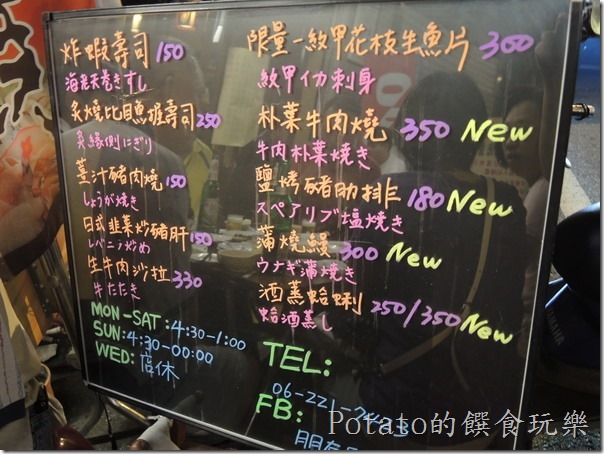 炸蝦壽司 150
海老天巻きすし
炙燒比目魚握壽司 250
炙縁側にぎり
薑汁豬肉燒 150
しょうが焼き
日式韮菜炒豬肝 150
レバニラ炒め
生牛肉沙拉 330
牛たたき
MON-SAT:4:30-1:00
SUN:4:30-00:00
WED:店休
限量-紋甲花枝生魚片 300
紋甲イカ刺身
朴葉牛肉燒 350 New
牛肉朴葉焼き
鹽烤豬肋排 180 New
スペアリブ塩焼き
蒲燒鰻 300 New
ウナギ蒲焼き
酒蒸蛤蜊 250/350 New
蛤酒蒸し
TEL:
06-221-
FB:
Potato的饌食玩樂